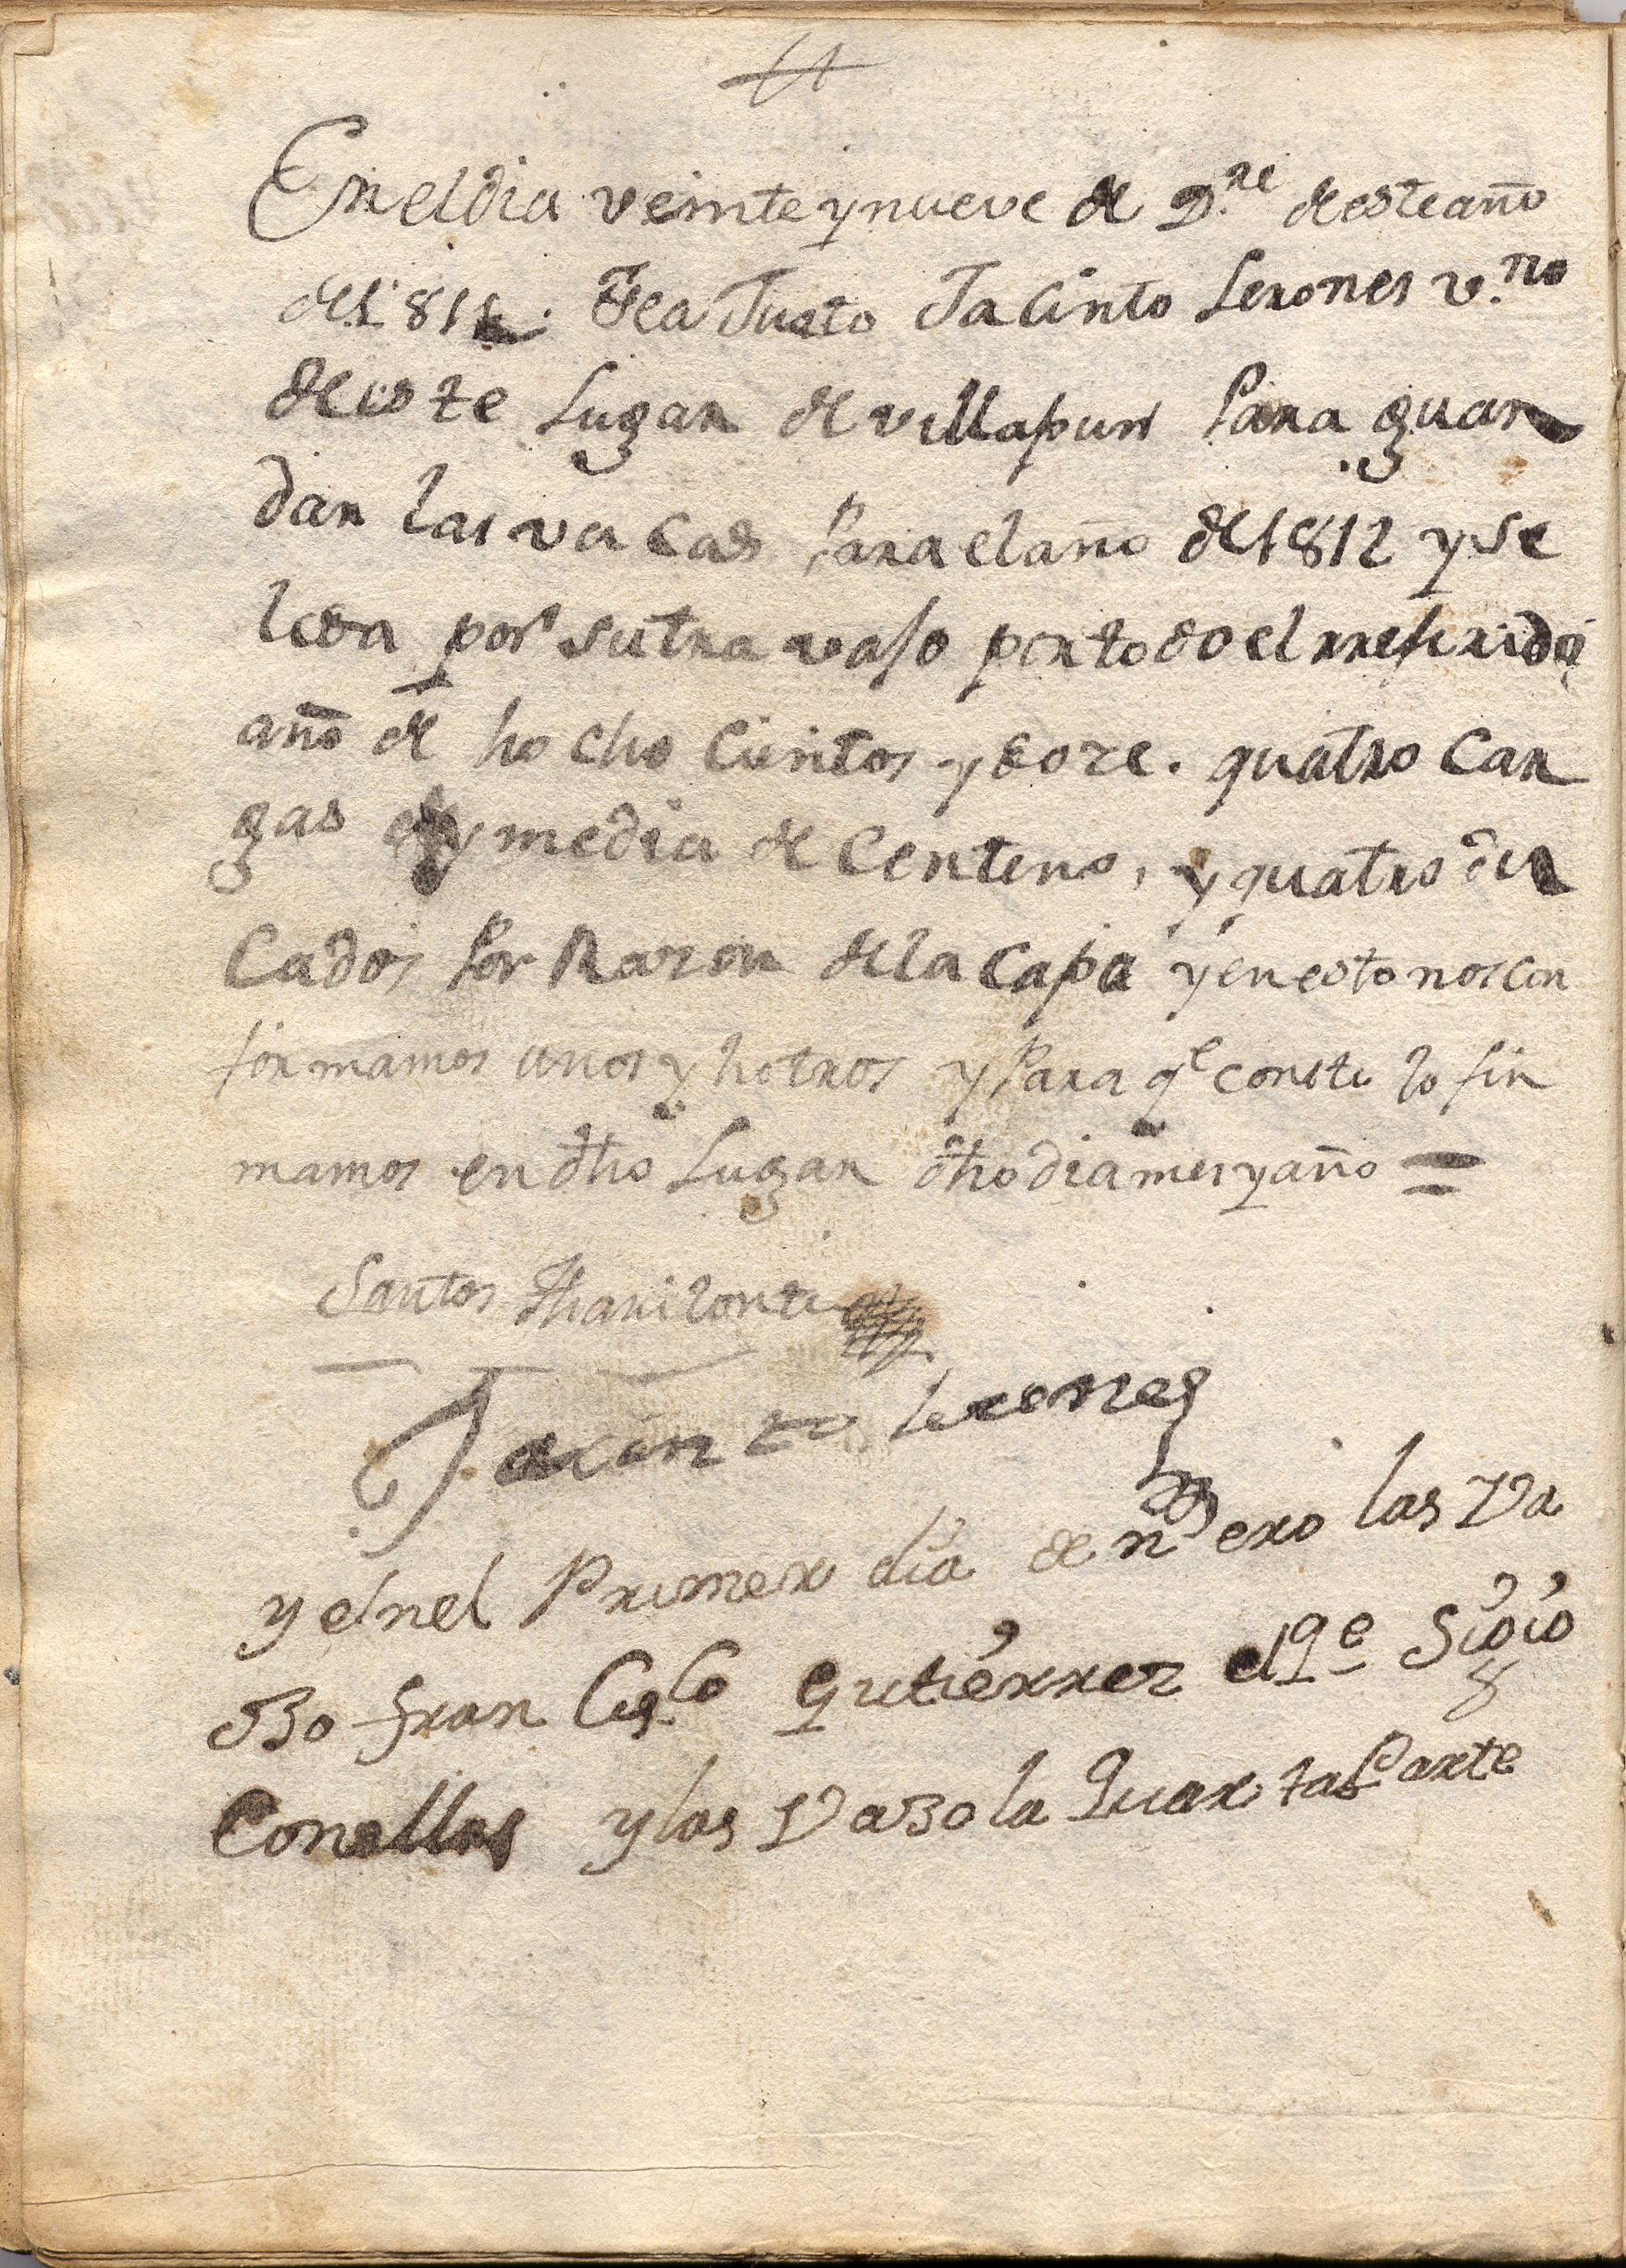 En el dia veinte y nueve de D.re de este año
de 1811. Se a Justo Jacinto Lerones v.no
de este Lugar de villapun Para guar
dar las vacas Para el año de 1812 y se
le da por su travajo por todo el rreferido
año de hocho cientos y doze. quatro Car
gas y media de Centeno, y quatro du
Cados Por Razon de la Capa y en esto nos con
formamos unos y hotros y Para q.e conste lo fir
mamos en dho Lugar dho dia mes y año =
Santos
Jacinto lerones
y el nel Primer dia de nero las Va
Bo fran Cis.co Gutierrez el q.e Sigio
Con ellas y las Va Bo la Quarta Parte